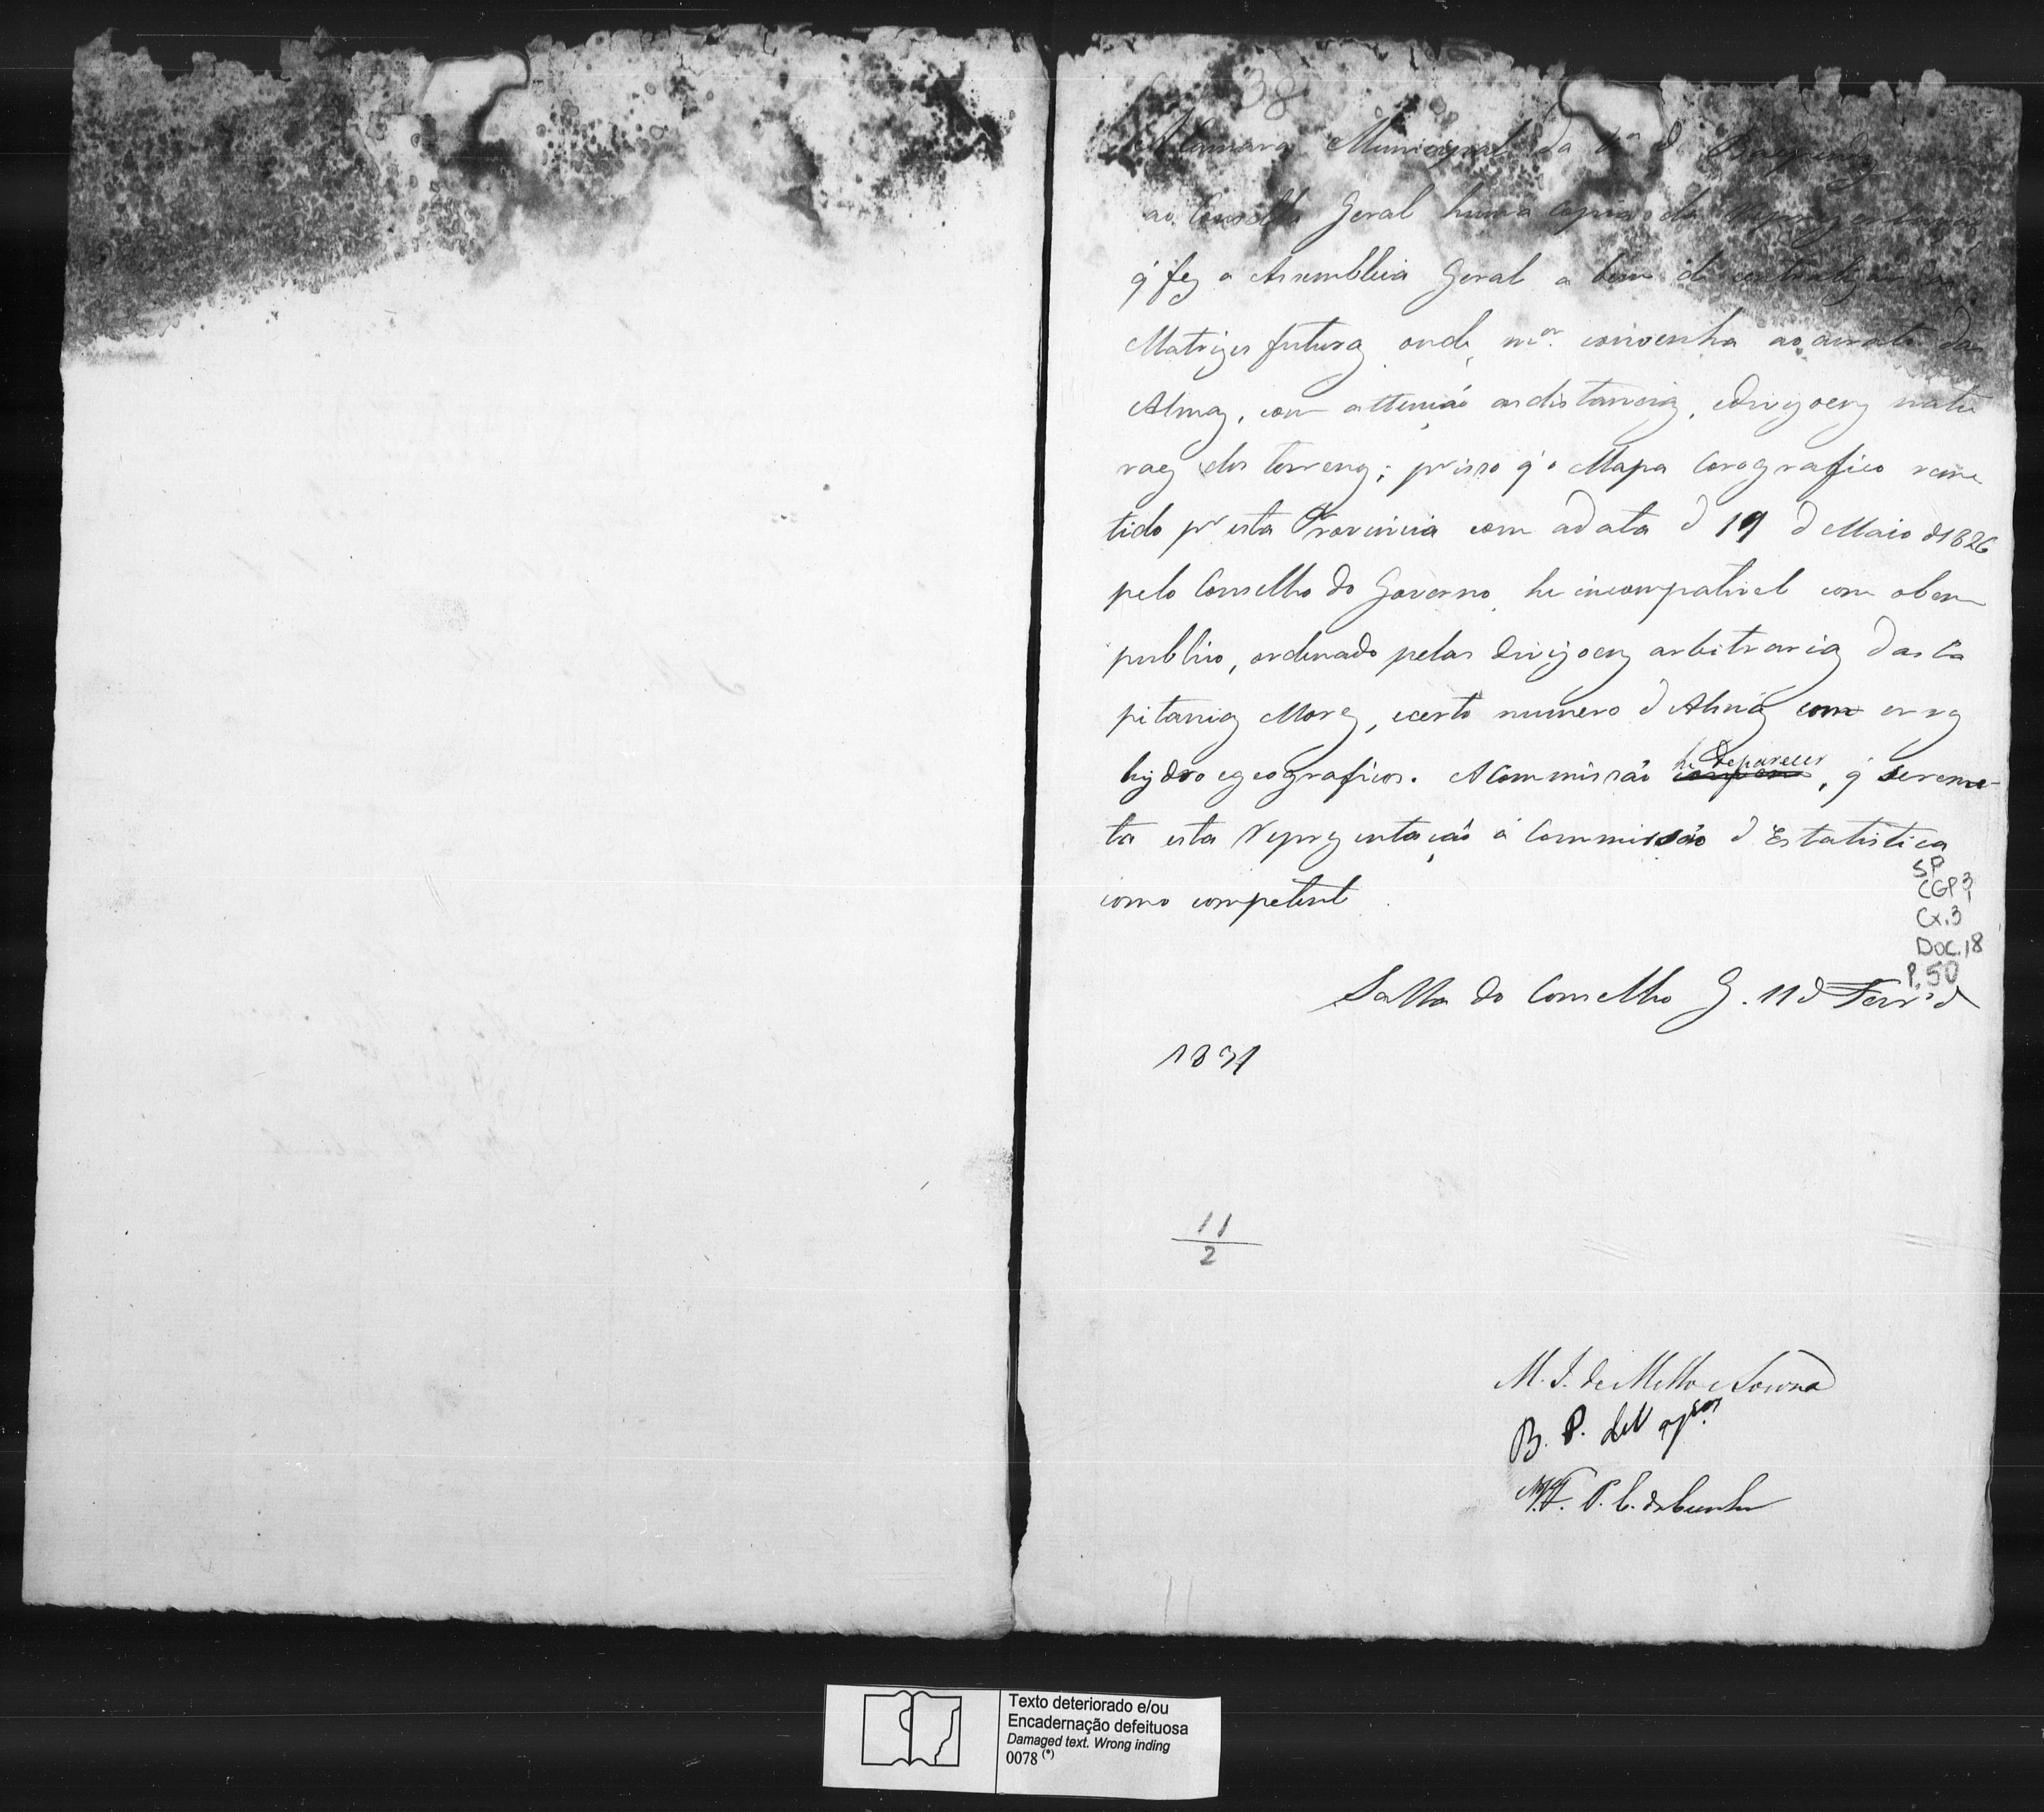 38
A Camara Municipal da Vª d Baependy
ao Conselho Geral huma copia da Reprezentação,
q' fez a Assemblеia Geral a bem de centralizar as
Matrizes futuras onde mor. convenha ao aurato das
Almas, com attenção as distancias, edivizoens natu
raes dos terrenos; pr isso q' o Mapa Corografico reme
tido pr esta Provincia com adata d 19 d Maio d 1826
pelo Conselho do Governo, he incompativel com obem
publico, ordenado pelas divizoens arbitrarias das Ca
pitanias Mores, ecerto numero d Almas com erros
hydro egeograficos. A Commissão he de parecer, q' sereme
ta esta Reprezentação á Commissão d Estatistica
como competente
SP
CGP3
Cx.3
Doc.18
P.50
Salla do Conselho G. 11 d Fevro d
1831
11
2
M. I. de Mello e Souza
B. P. de Vasos
M. F. P. C. da Cunha
11
Texto deteriorado e/ou
Encadernação defeituosa
Damaged text. Wrong inding
0078 (*)